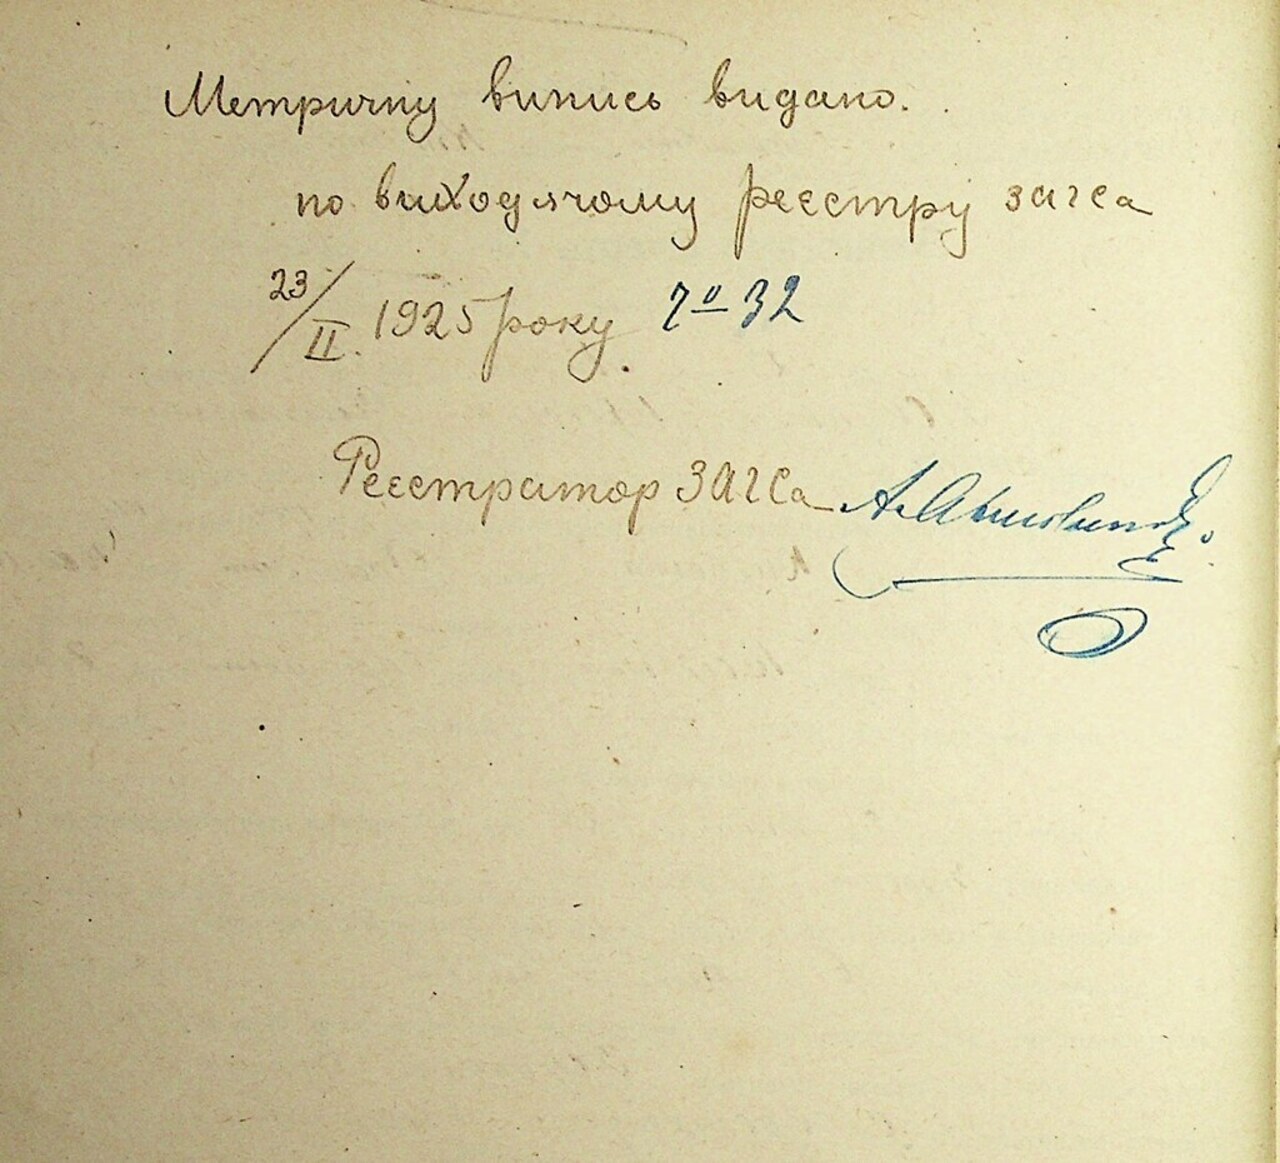 Метричну випись видано.
по виходячому реєстру загса
23/II. 1925 року. № 32
Реєстратор ЗАГСа А.